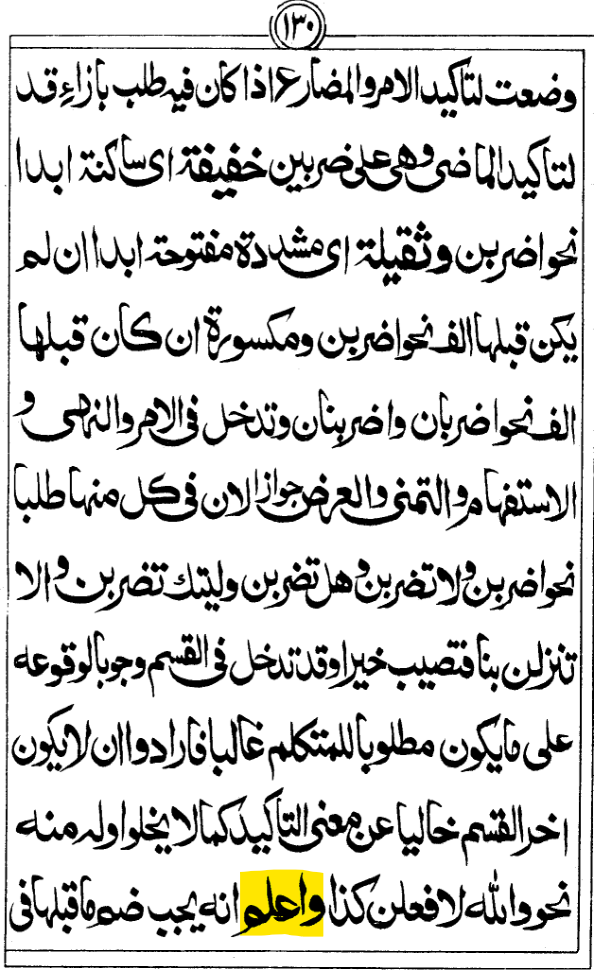 ١٣٠
وضعت لتاكيد الامر والمضارع اذا كان فيه طلب بازاء قد
لتاكيد الماضى وهى على ضربين خفيفة اى ساكنة ابدا
نحو اضربن وثقيلة اى مشددة مفتوحة ابدا ان لم
يكن قبلها الف نحو اضربن ومكسورة ان كان قبلها
الف نحو اضربان واضربنان وتدخل فى الامر والنهى و
الاستفهام والتمنى والعرض جوازا لان فى كل منها طلبا
نحو اضربن ولا تضربن وهل تضربن وليتك تضربن والا
تنزلن بنا فتصيب خيرا وقد تدخل فى القسم وجوبا لوقوعه
على ما يكون مطلوبا للمتكلم غالبا فارادوا ان لا يكون
اخر القسم خاليا عن معنى التاكيد كما لا يخلو اوله منه
نحو والله لافعلن كذا واعلم انه يجب ضم ما قبلها فى